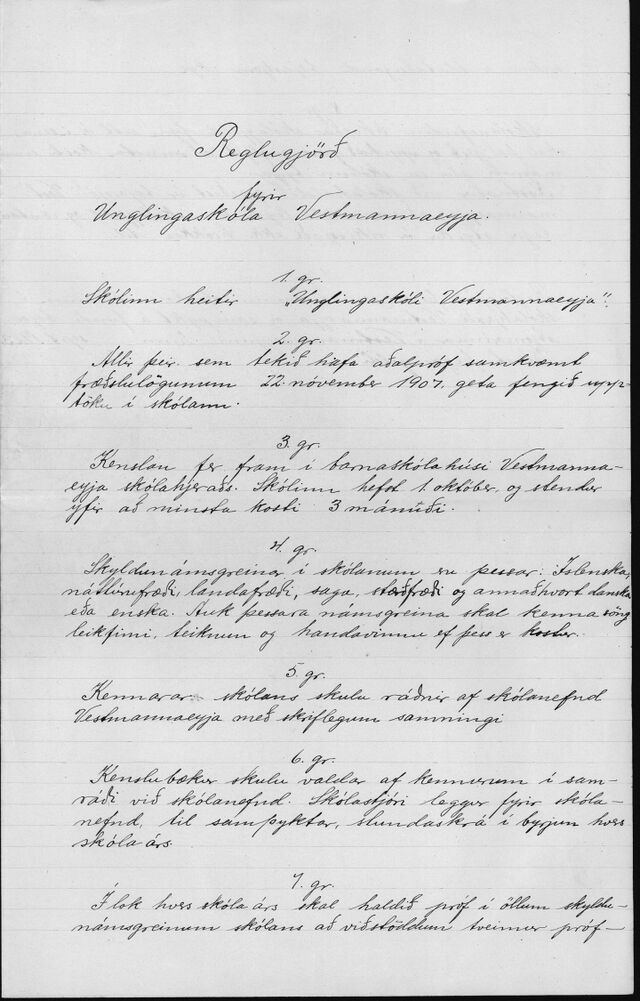 Reglugjörð
fyrir
Unglingaskóla Vestmannaeyja.
1. gr.
Skólinn heitir "Unglingaskóli Vestmannaeyja".
2. gr.
Allir þeir, sem tekið hafa aðalpróf samkvæmt
fræðslulögunum 22. nóvember 1907, geta fengið upp-
töku í skólann.
3. gr.
Kenslan fer fram í barnaskólahúsi Vestmanna-
eyja skólahjeraðs. Skólinn hefst 1. október, og stendur
yfir að minsta kosti 3 mánuði.
4. gr.
Skyldunámsgreinar í skólanum eru þessar: Íslenska,
náttúrufræði, landafræði, saga, stærðfræði og annaðhvort danska
eða enska. Auk þessara námsgreina skal kenna söng
leikfimi, teiknun og handavinnu ef þess er kostur.
5. gr.
Kennarar skólans skulu ráðnir af skólanefnd
Vestmannaeyja með skriflegum samningi
6. gr.
Kenslubækur skulu valdar af kennurum í sam-
ráði við skólanefnd. Skólastjóri leggur fyrir skóla-
nefnd, til samþyktar, stundaskrá í byrjun hvers
skólaárs
7. gr.
Í lok hvers skólaárs skal haldið próf í öllum skyldu-
námsgreinum skólans að viðstöddum tveimur próf-